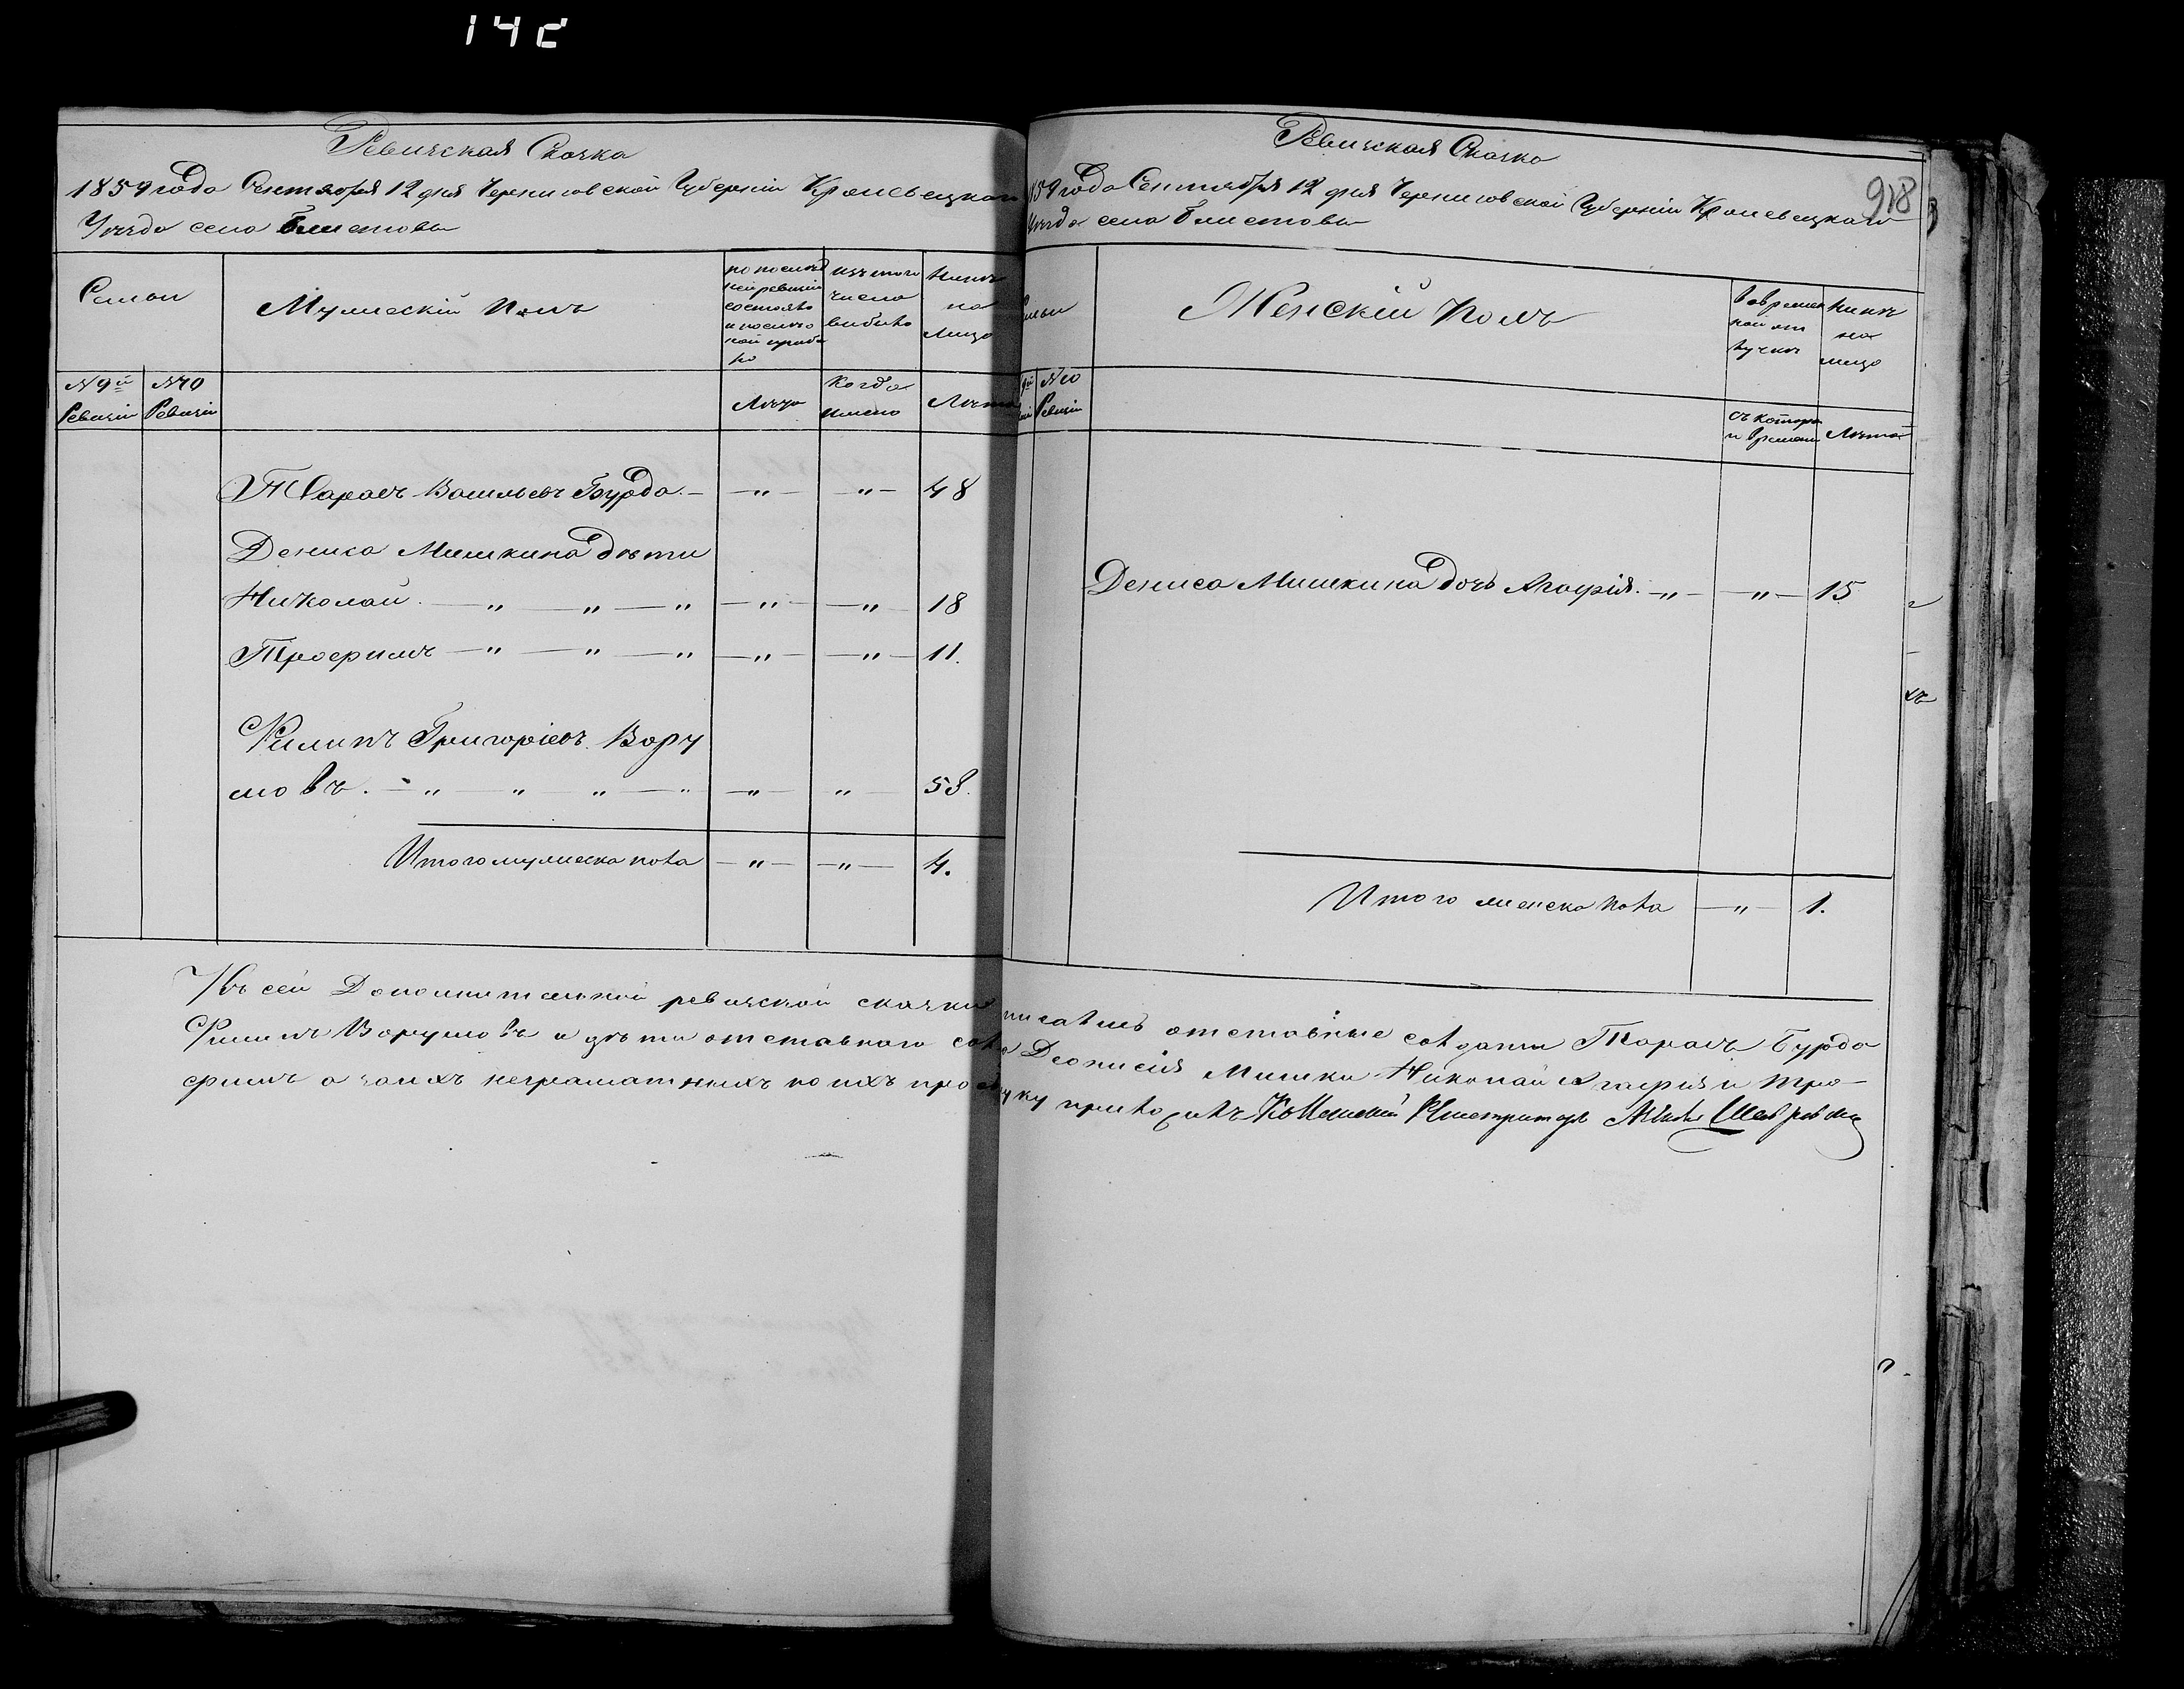 142
Ревизская Сказка
1859 года Сентября 12 дня Черниговской Губерніи Кролевецкаго
Уезда села Блистовы
Семьи
Мужескій Полъ
по послед
ней ревизіи
состояло
и после
ной прибы
ло
изъ того
число
выбыло
Ныне
на
лицо
№ 9й
Ревизіи
№ 10
Ревизіи
Лета
Когда
имено
Лета
Тарасъ Васильевъ Бурда. — " — — " — 48
Дениса Мишкина дети
Николай. — " — " — " — " — — " 18
Трофимъ — " — " — " — " — — " — 11.
Филипъ Григоріевъ Вору
мовъ. — " " " — " — " — 58.
Итого мужеска пола — " — — " — 4.
918
Ревизская Сказка
1859 года Сентября 12 дня Черниговской Губерніи Кролевецкаго
Уезда села Блистовы
Семьи
Женскій Полъ
Вовремен
ной от
лучки
Ныне
на
лицо
9й
№ 10
Ревизіи
съ которо
и времени
Лета
Дениса Мишкина дочь Агафія. — " — — " — 15
Итого женска пола — " — 1.
Къ сей Дополнительной ревизской сказки писались отставные солдати Тарасъ Бурда
Филипъ Ворумовъ и дети отставного солда Деонисія Мишки Николай Агафія и Тро-
фимъ а за ихъ неграматныхъ по ихъ прозбе руку приложилъ Колежскій Регистраторъ